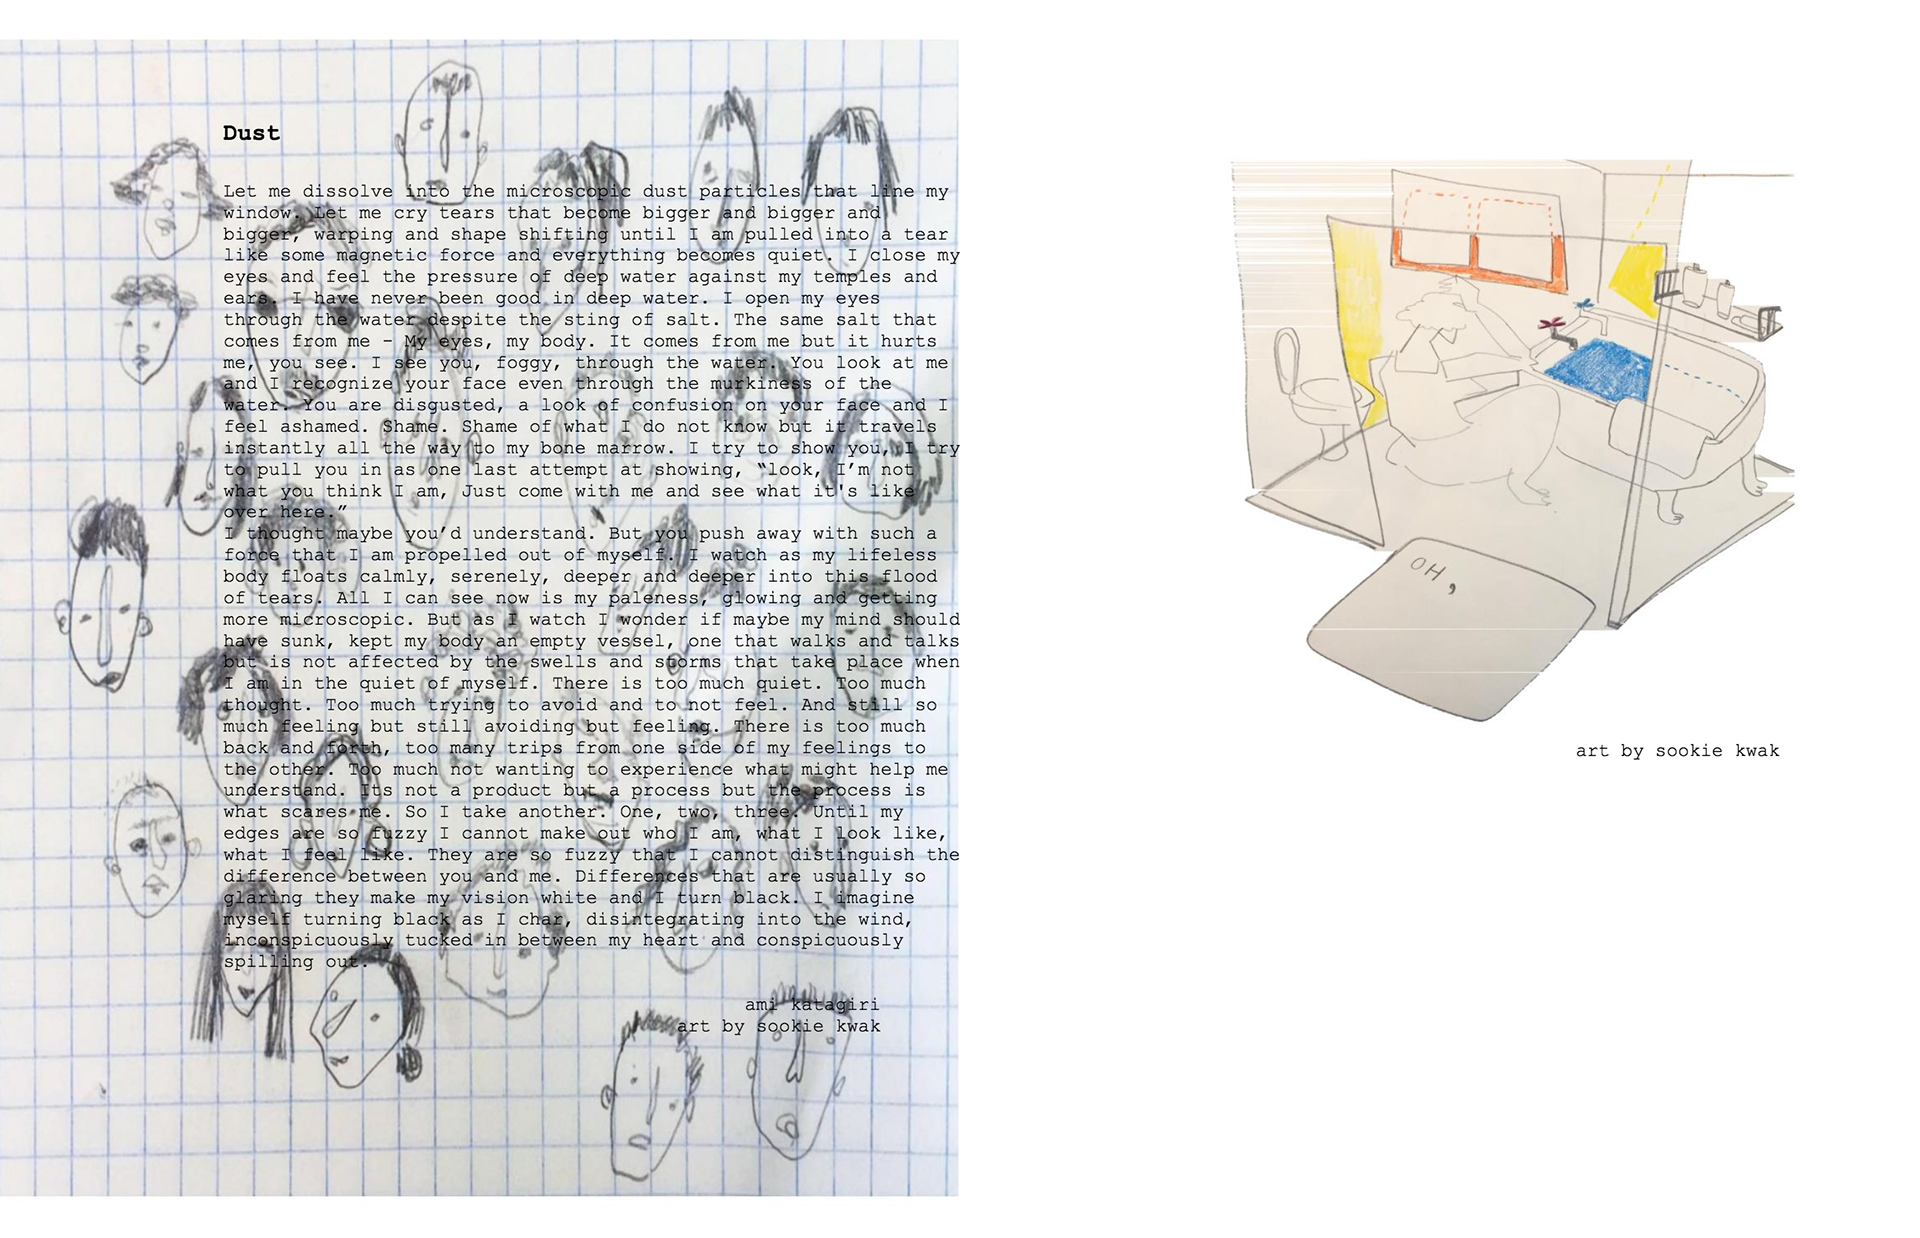 Dust
Let me dissolve into the microscopic dust particles that line my
window. Let me cry tears that become bigger and bigger and
bigger, warping and shape shifting until I am pulled into a tear
like some magnetic force and everything becomes quiet. I close my
eyes and feel the pressure of deep water against my temples and
ears. I have never been good in deep water. I open my eyes
through the water despite the sting of salt. The same salt that
comes from me – My eyes, my body. It comes from me but it hurts
me, you see. I see you, foggy, through the water. You look at me
and I recognize your face even through the murkiness of the
water. You are disgusted, a look of confusion on your face and I
feel ashamed. Shame. Shame of what I do not know but it travels
instantly all the way to my bone marrow. I try to show you, I try
to pull you in as one last attempt at showing, “look, I’m not
what you think I am, Just come with me and see what it's like
over here.”
I thought maybe you’d understand. But you push away with such a
force that I am propelled out of myself. I watch as my lifeless
body floats calmly, serenely, deeper and deeper into this flood
of tears. All I can see now is my paleness, glowing and getting
more microscopic. But as I watch I wonder if maybe my mind should
have sunk, kept my body an empty vessel, one that walks and talks
but is not affected by the swells and storms that take place when
I am in the quiet of myself. There is too much quiet. Too much
thought. Too much trying to avoid and to not feel. And still so
much feeling but still avoiding but feeling. There is too much
back and forth, too many trips from one side of my feelings to
the other. Too much not wanting to experience what might help me
understand. Its not a product but a process but the process is
what scares me. So I take another. One, two, three. Until my
edges are so fuzzy I cannot make out who I am, what I look like,
what I feel like. They are so fuzzy that I cannot distinguish the
difference between you and me. Differences that are usually so
glaring they make my vision white and I turn black. I imagine
myself turning black as I char, disintegrating into the wind,
inconspicuously tucked in between my heart and conspicuously
spilling out.
ami katagiri
art by sookie kwak
OH,
art by sookie kwak